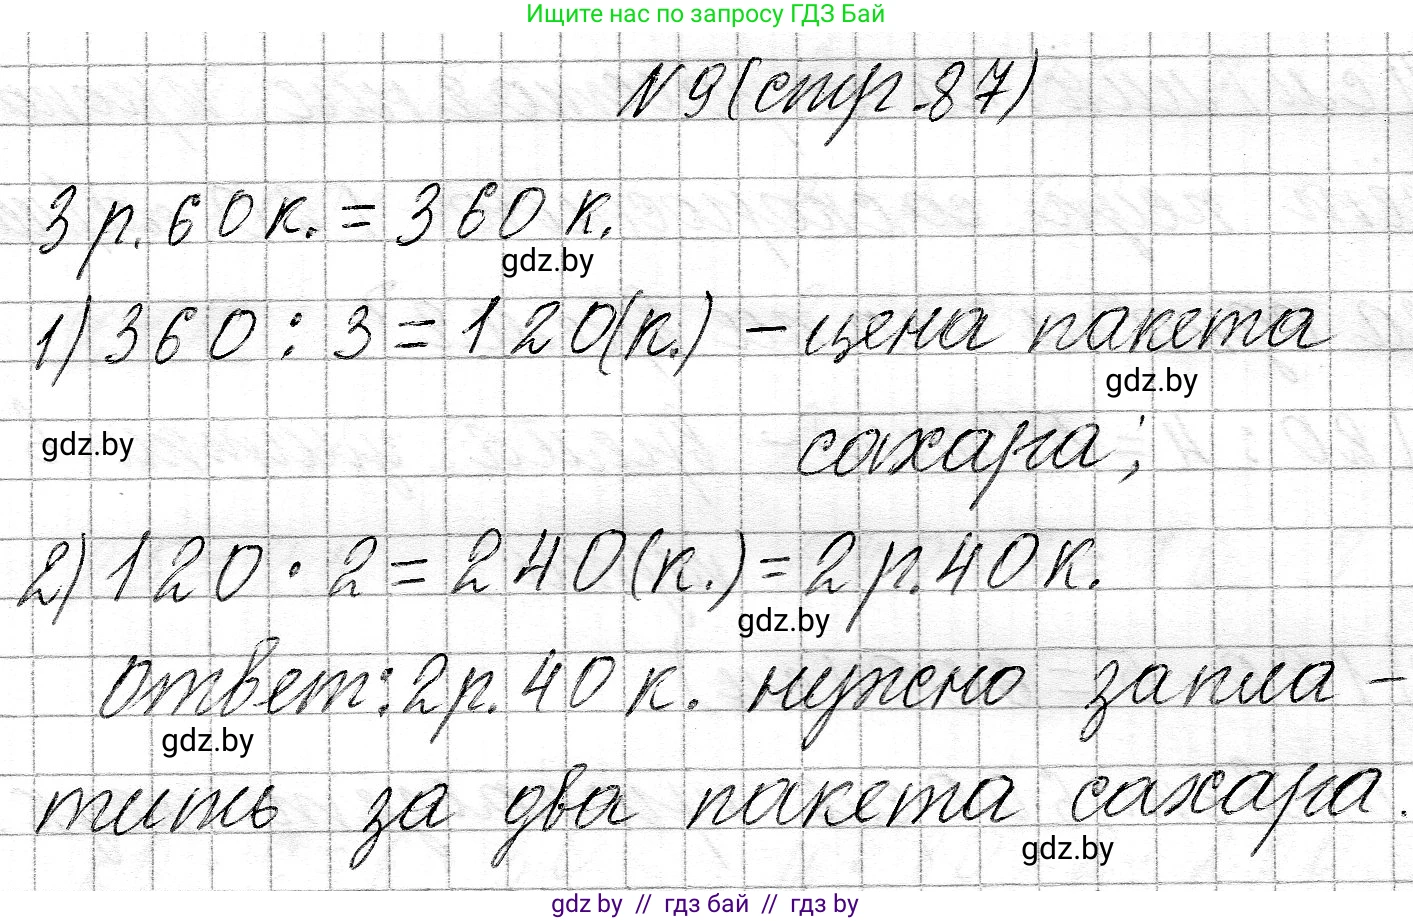 Ищите нас по запросу ГДЗ Бай
№9(стр.87)
3р.60к.=360к.
gdz.by
1) 360:3=120(к.) – цена пакета
gdz.by
gdz.by
сахара;
2) 120·2=240(к.)=2р.40к.
gdz.by
Ответ: 2р.40к. нужно запла-
gdz.by
тить за два пакета сахара.
gdz.by
gdz.by // гдз бай // гдз by